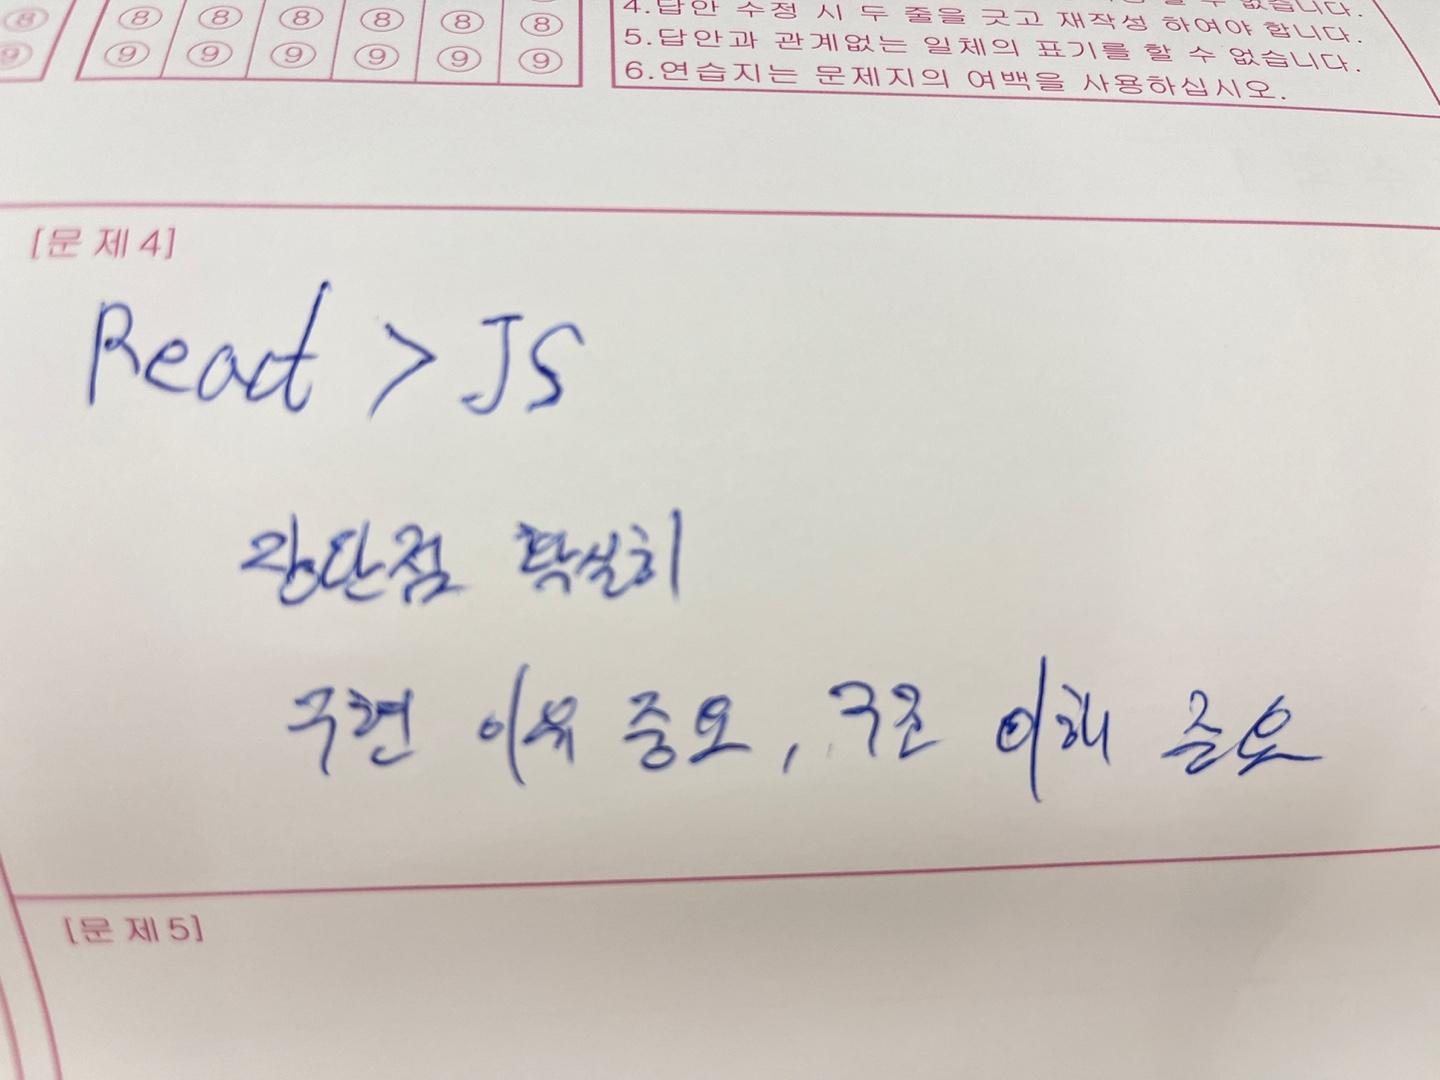 ⑧ ⑧ ⑧ ⑧ ⑧ ⑧ ⑧
⑨ ⑨ ⑨ ⑨ ⑨ ⑨ ⑨
수 없습니다.
4.답안 수정 시 두 줄을 긋고 재작성 하여야 합니다.
5.답안과 관계없는 일체의 표기를 할 수 없습니다.
6.연습지는 문제지의 여백을 사용하십시오.
[문 제 4]
React > JS
장단점 확실히
구현 이유 중요, 구조 이해 중요
[문 제 5]